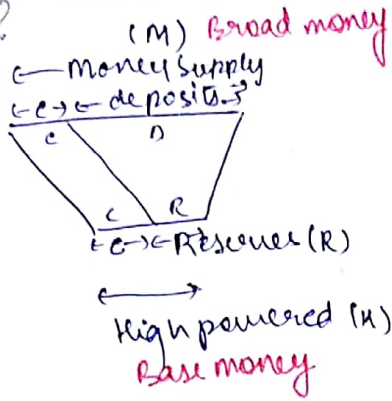 ?
(M) Broad money
← Money Supply
← c → ← deposits →
C D
C R
← C → ← Reserves (R)
High powered (H)
Base money